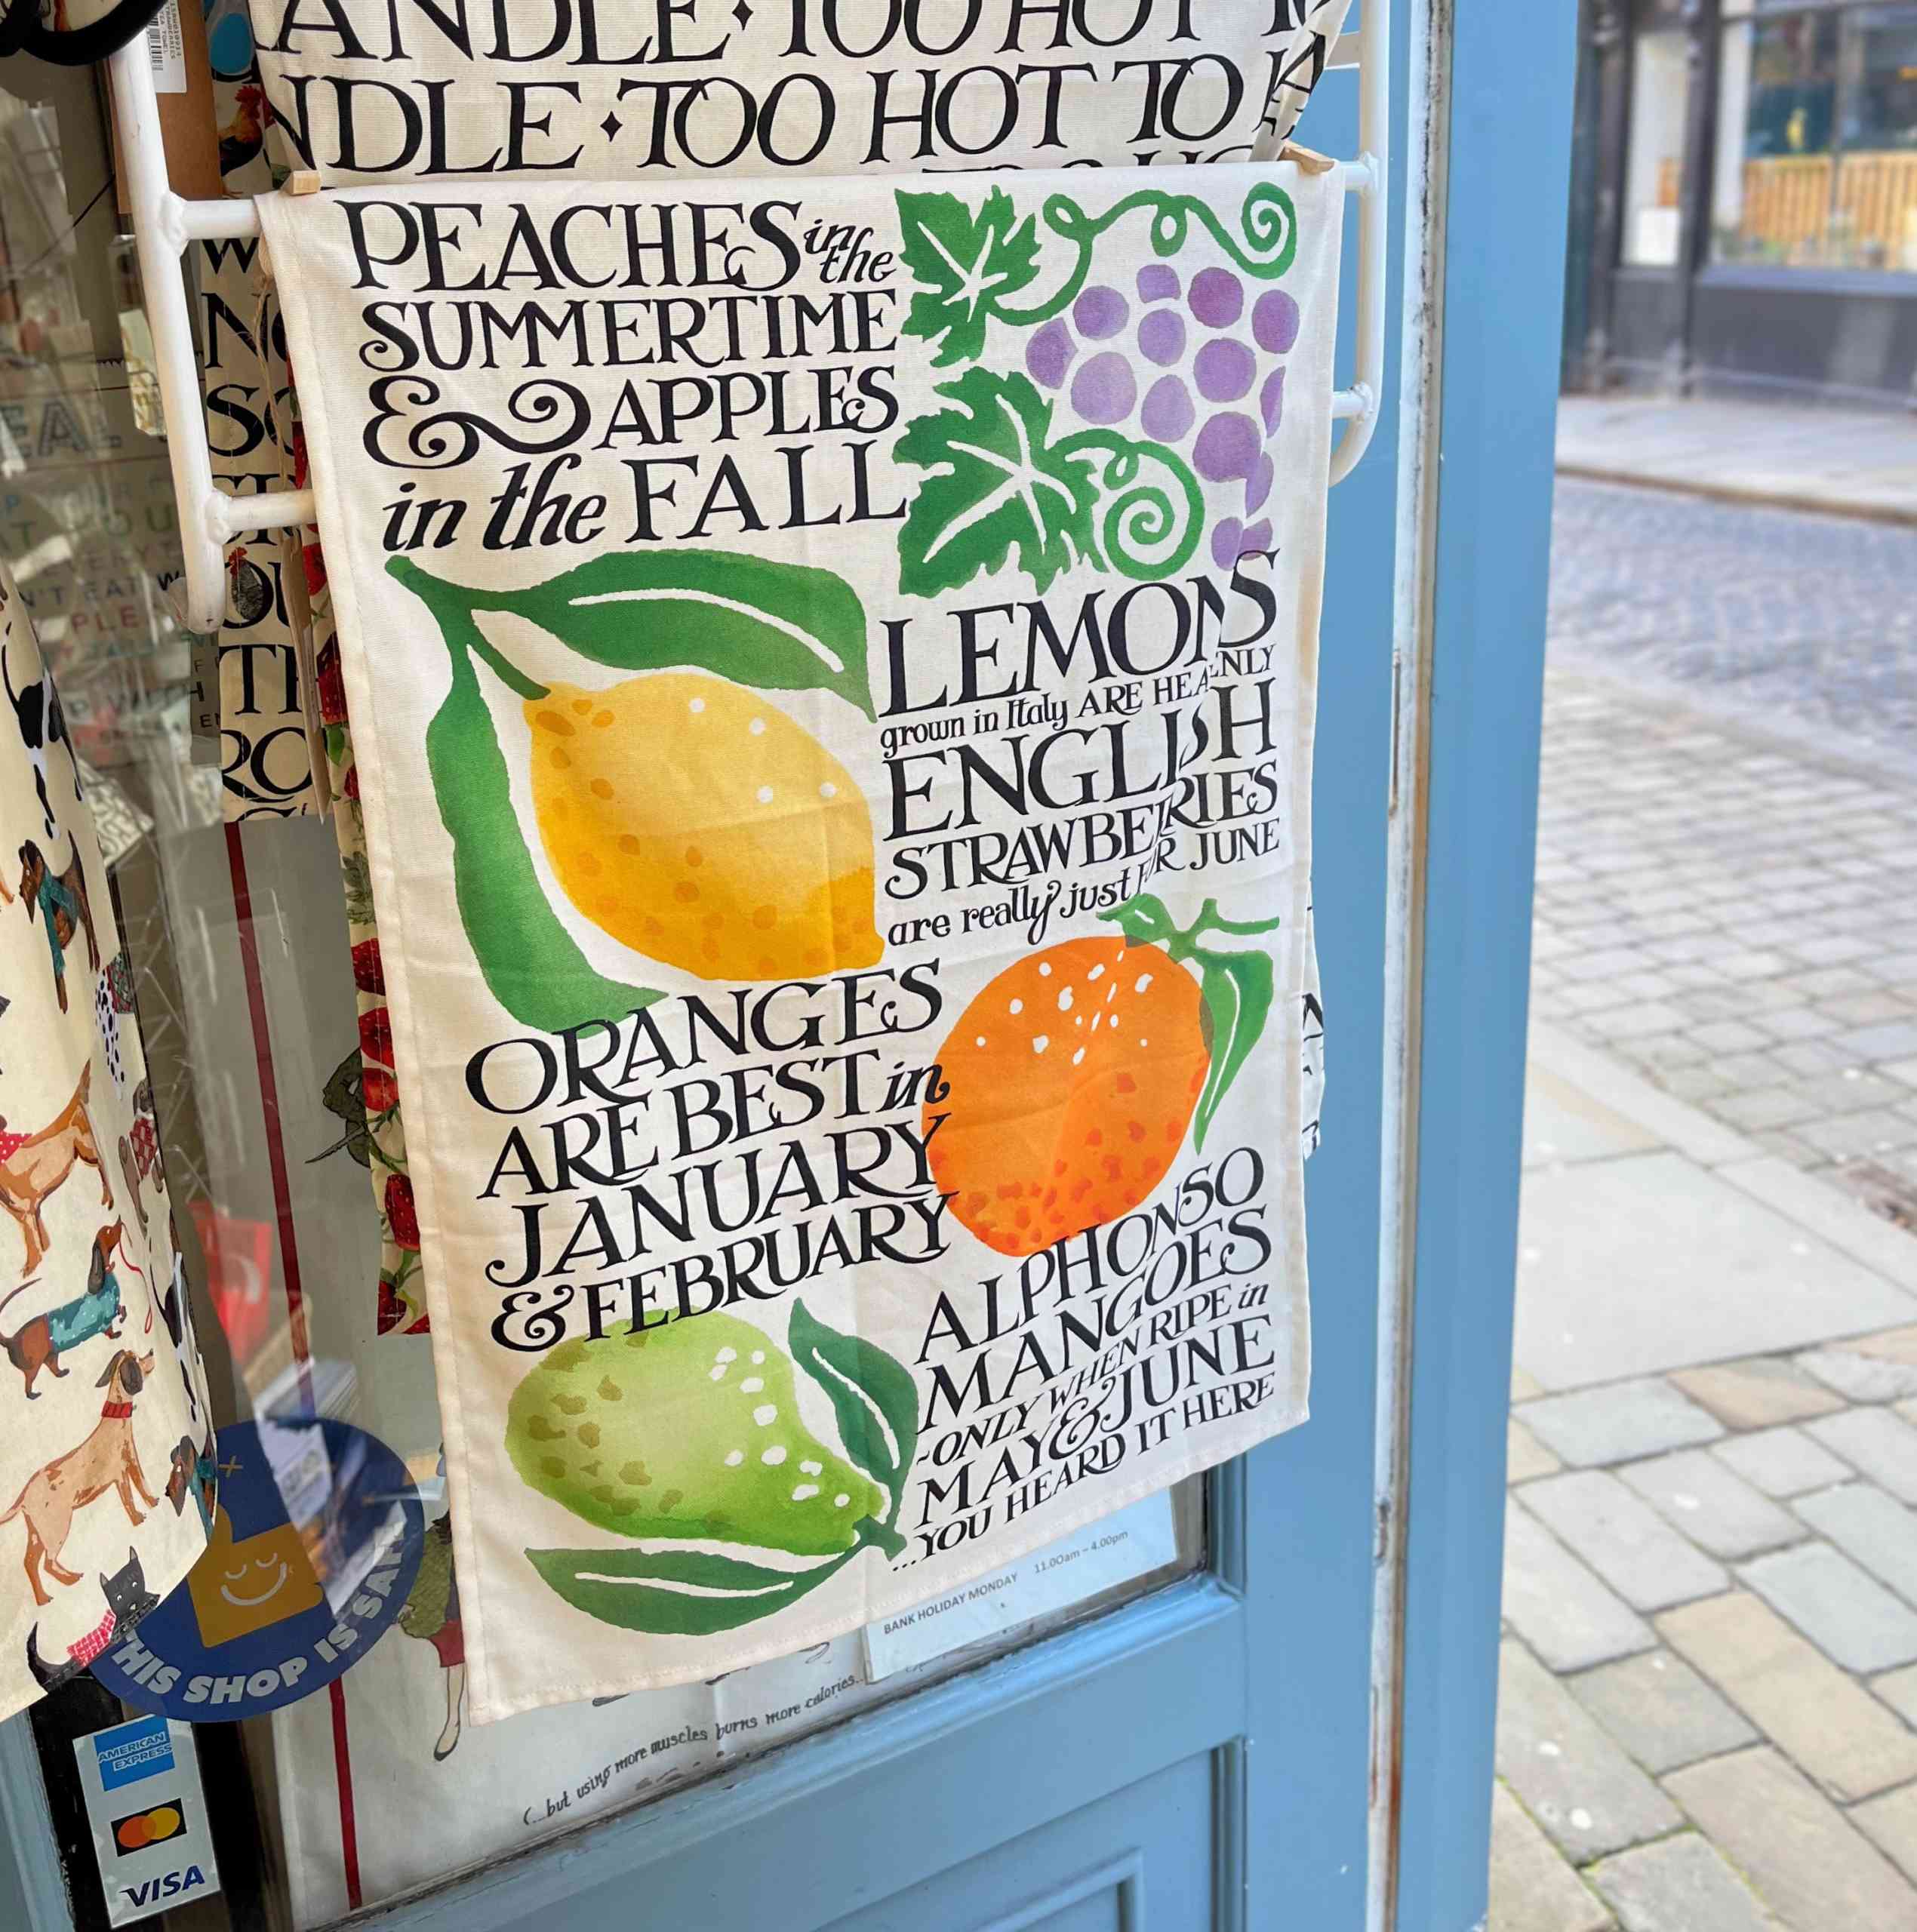 TOO HOT
TOO HOT TO
PEACHES in the
SUMMERTIME
& APPLES
in the FALL
LEMONS
grown in Italy ARE HEAVENLY
ENGLISH
STRAWBERRIES
are really just FOR JUNE
ORANGES
ARE BEST in
JANUARY
& FEBRUARY
ALPHONSO
MANGOES
-ONLY WHEN RIPE in
MAY & JUNE
...YOU HEARD IT HERE
BANK HOLIDAY MONDAY 11.00am – 4.00pm
THIS SHOP IS
(...but using more muscles burns more calories...
AMERICAN
EXPRESS
VISA